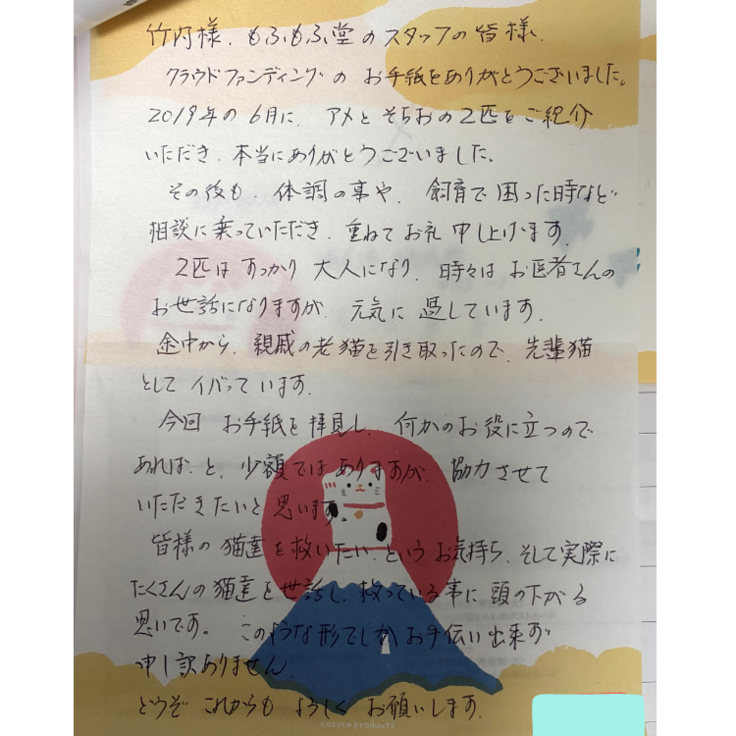 竹内様、もふもふ堂のスタッフの皆様、
クラウドファンディングの お手紙をありがとうございました。
2019年の 6月に、アメと そらおの2匹を ご紹介
いただき、本当にありがとうございました。
その後も、体調の事や、飼育で 困った時など
相談に乗っていただき、重ねて お礼 申し上げます。
2匹は すっかり 大人になり、時々は お医者さんの
お世話になりますが、元気に 過しています。
途中から、親戚の老猫を引き取ったので、先輩猫
として イバって います。
今回 お手紙を 拝見し、何かのお役に立つので
あれば、と、少額では ありますが、協力させて
いただきたいと 思います。
皆様の 猫達を救いたい、という お気持ち、そして実際に
たくさんの猫達を世話し、救っている事に 頭の下がる
思いです。このような形でしか お手伝い出来ず
申し訳ありません。
どうぞ これからも よろしく お願いします。
cozyca products